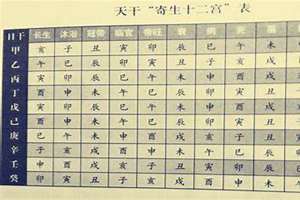 天干“寄生十二宫”表
日干 长生 沐浴 冠带 临官 帝旺 衰 病 死
甲 亥 子 丑 寅 卯 辰 巳 午 未
乙 午 巳 辰 卯 寅 丑 子 亥 戌
丙 寅 卯 辰 巳 午 未 申 酉 戌
丁 酉 申 未 午 巳 辰 卯 寅 丑
戊 寅 卯 辰 巳 午 未 申 酉 戌
己 酉 申 未 午 巳 辰 卯 寅 丑
庚 巳 午 未 申 酉 戌 亥 子 丑
辛 子 亥 戌 酉 申 未 午 巳 辰
壬 申 酉 戌 亥 子 丑 寅 卯 辰
癸 卯 寅 丑 子 亥 戌 酉 申 未